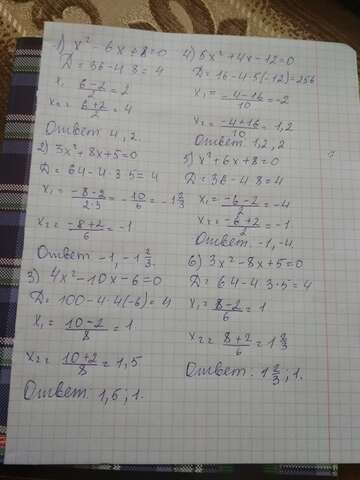 1) x² - 6x + 8 = 0
D = 36 - 4·8 = 4
x₁ = (6-2)/2 = 2
x₂ = (6+2)/2 = 4
Ответ: 4, 2.
2) 3x² + 8x + 5 = 0
D = 64 - 4·3·5 = 4
x₁ = (-8-2)/(2·3) = -10/6 = -1 2/3
x₂ = (-8+2)/6 = -1
Ответ: -1, -1 2/3.
3) 4x² - 10x - 6 = 0
D = 100 - 4·4(-6) = 4
x₁ = (10-2)/8 = 1
x₂ = (10+2)/8 = 1,5
Ответ: 1,5; 1.
4) 5x² + 4x - 12 = 0
D = 16 - 4·5·(-12) = 256
x₁ = (-4-16)/10 = -2
x₂ = (-4+16)/10 = 1,2
Ответ: 1,2, 2
5) x² + 6x + 8 = 0
D = 36 - 4·8 = 4
x₁ = (-6-2)/2 = -4
x₂ = (-6+2)/2 = -1.
Ответ: -1, -4.
6) 3x² - 8x + 5 = 0
D = 64 - 4·3·5 = 4
x₁ = (8-2)/6 = 1
x₂ = (8+2)/6 = 1 2/3
Ответ: 1 2/3; 1.